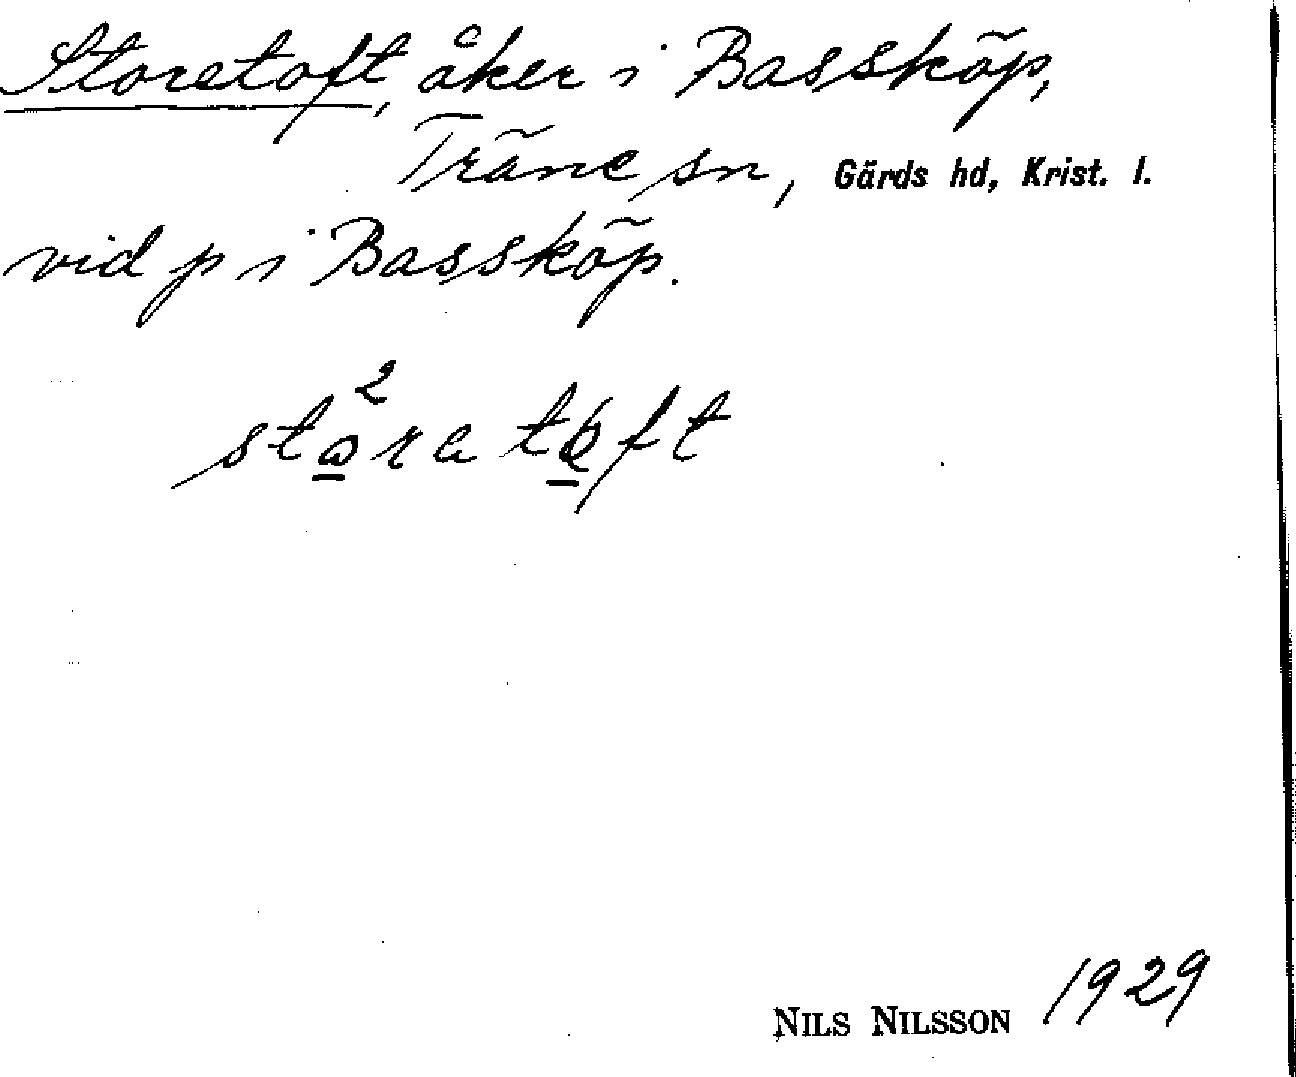 Storetoft, åker i Bassköp,
Träne sn, Gärds hd, Krist. l.
vid p i Bassköp.
2
NILS NILSSON 1929